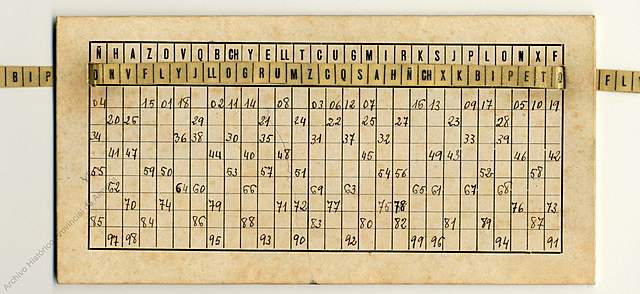 Ñ H A Z D V Q B CH Y E LL T C U G M I R K S J P L O N X F
B I P D N V F L Y J LL O G R U M Z C Q S A H Ñ CH X K B I P E T D F L Y
04 15 01 18 02 11 14 08 03 06 12 07 16 13 09 17 05 10 19
20 26 29 21 24 22 25 27 23 28
34 36 38 30 35 31 37 32 33 39
41 47 44 40 48 45 49 43 46 42
55 59 50 53 57 51 54 56 52 58
62 64 60 66 69 63 65 61 67 68
70 74 79 71 72 77 75 78 76 73
85 84 86 88 83 80 82 81 89 87
97 98 95 93 90 92 99 96 94 91
Archivo Histórico Provincial de